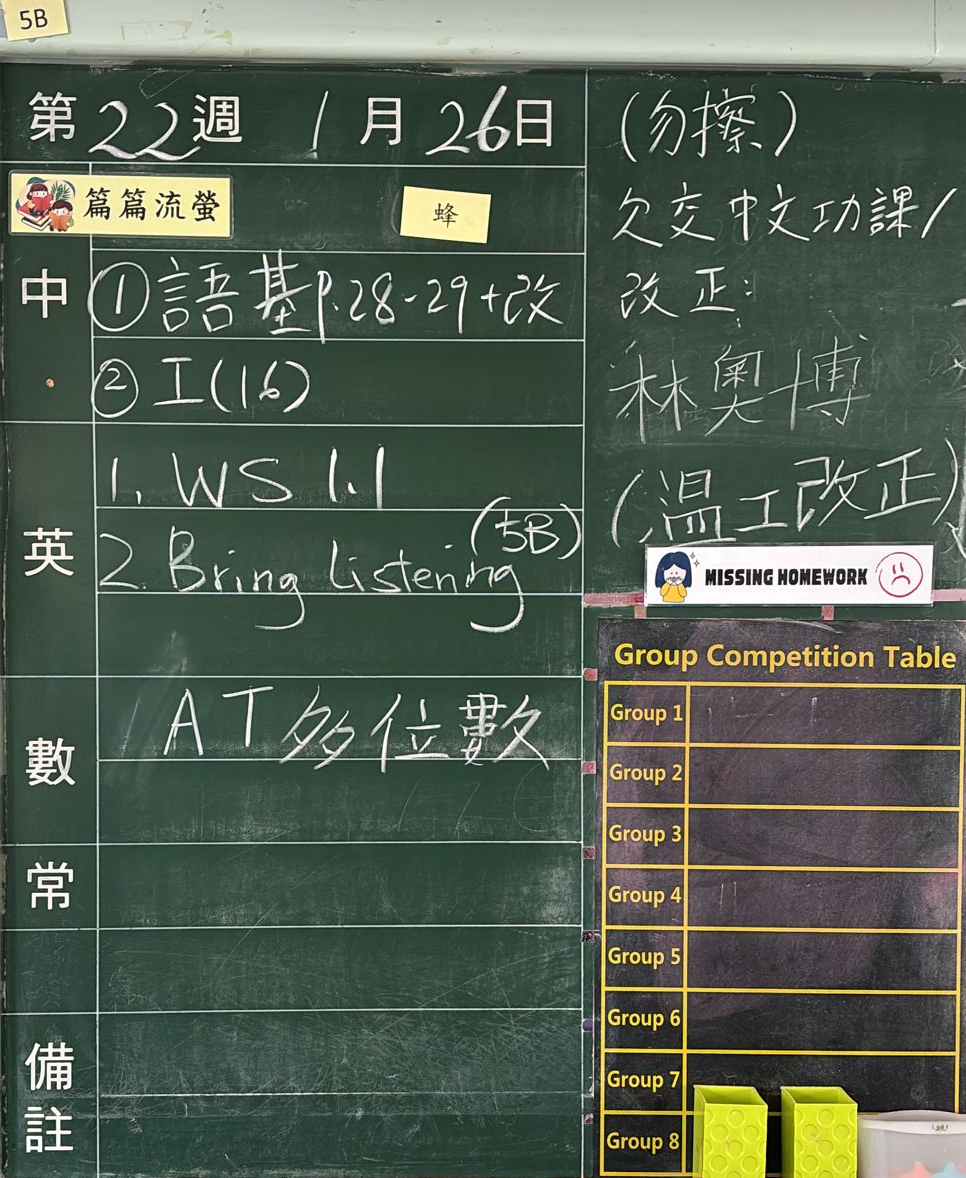 5B
第22週 1月26日
篇篇流螢 蜂
中
①語基p.28-29+改
②I(16)
英
1. WS 1.1
2. Bring Listening (5B)
數
AT多位數
常
備註
(勿擦)
欠交中文功課/
改正:
林奧博
(溫工改正)
MISSING HOMEWORK
Group Competition Table
Group 1
Group 2
Group 3
Group 4
Group 5
Group 6
Group 7
Group 8